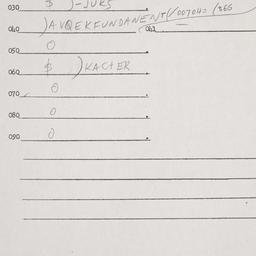 030 $ )-JURS
040 )AVQEKFUNDANENT(/00704 (266
041
050 0
060 $ )KACTER
070 0
080 0
090 0